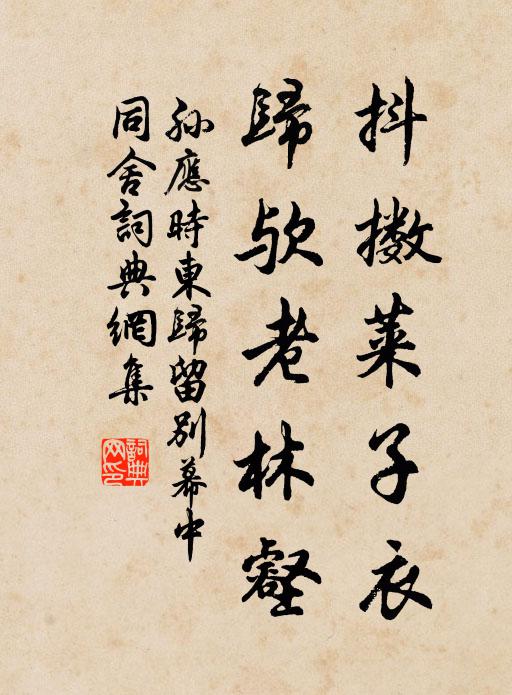 抖擻萊子衣
歸欤老林壑
孫應時東歸留別幕中
同舍詞典網集
詞典网印